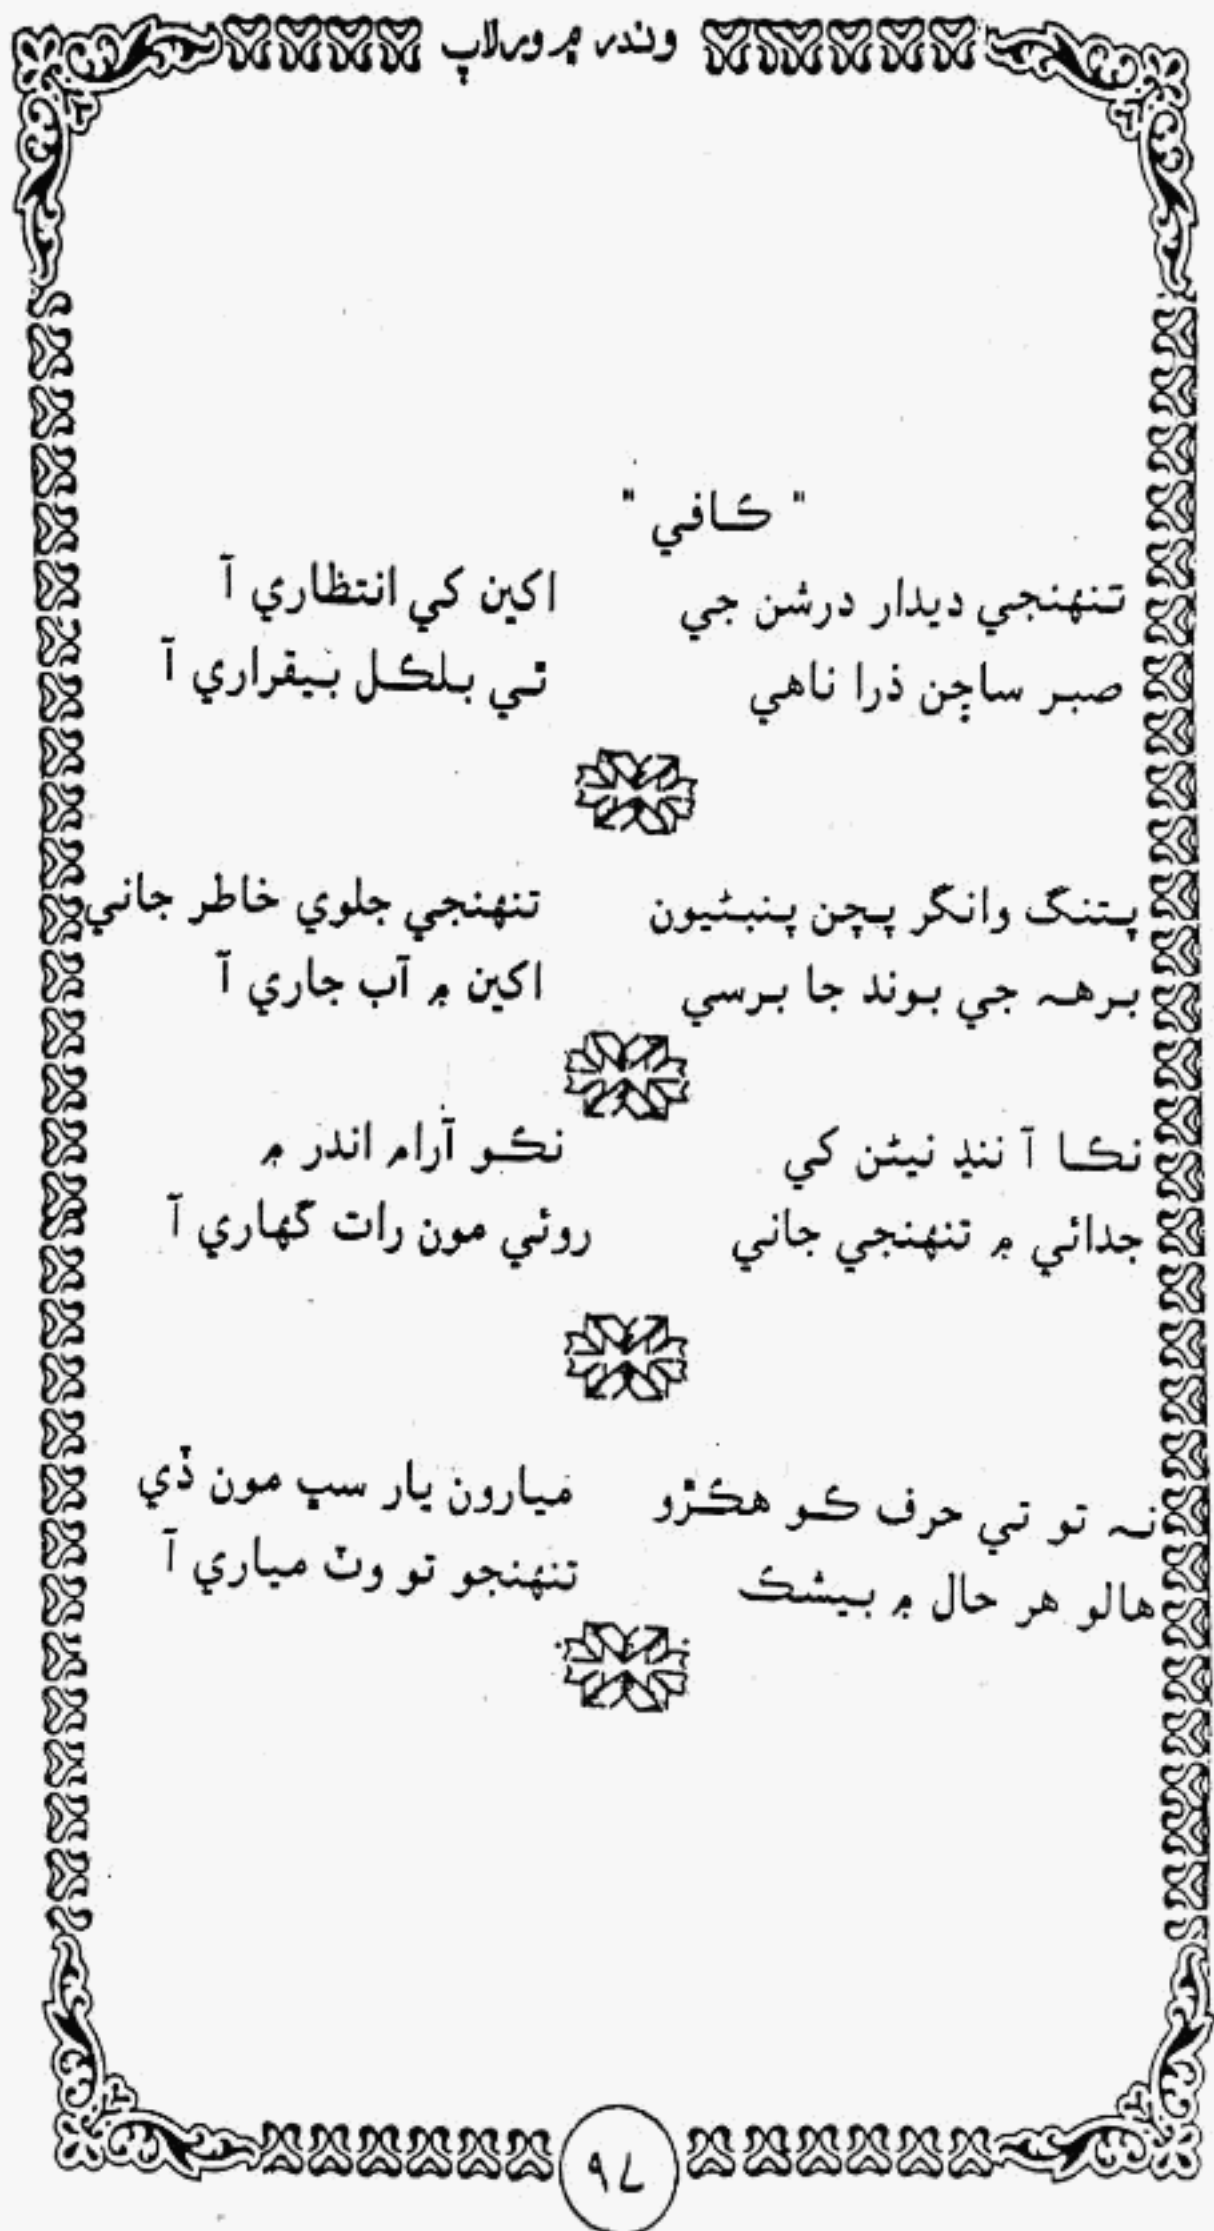 وندر ۾ ورلاپ
" ڪافي "
تنهنجي ديدار درشن جي اکين کي انتظاري آ
صبر ساڄن ذرا ناهي ٿي بلڪل بيقراري آ
پتنگ وانگر پچن پنبڻيون تنهنجي جلوي خاطر جاني
برهه جي بوند جا برسي اکين ۾ آب جاري آ
نڪا آ ننڊ نيڻن کي نڪو آرام اندر ۾
جدائي ۾ تنهنجي جاني روئي مون رات گهاري آ
نه تو تي حرف ڪو هڪڙو ميارون يار سڀ مون ڏي
هالو هر حال ۾ بيشڪ تنهنجو تو وٽ مياري آ
٩٧